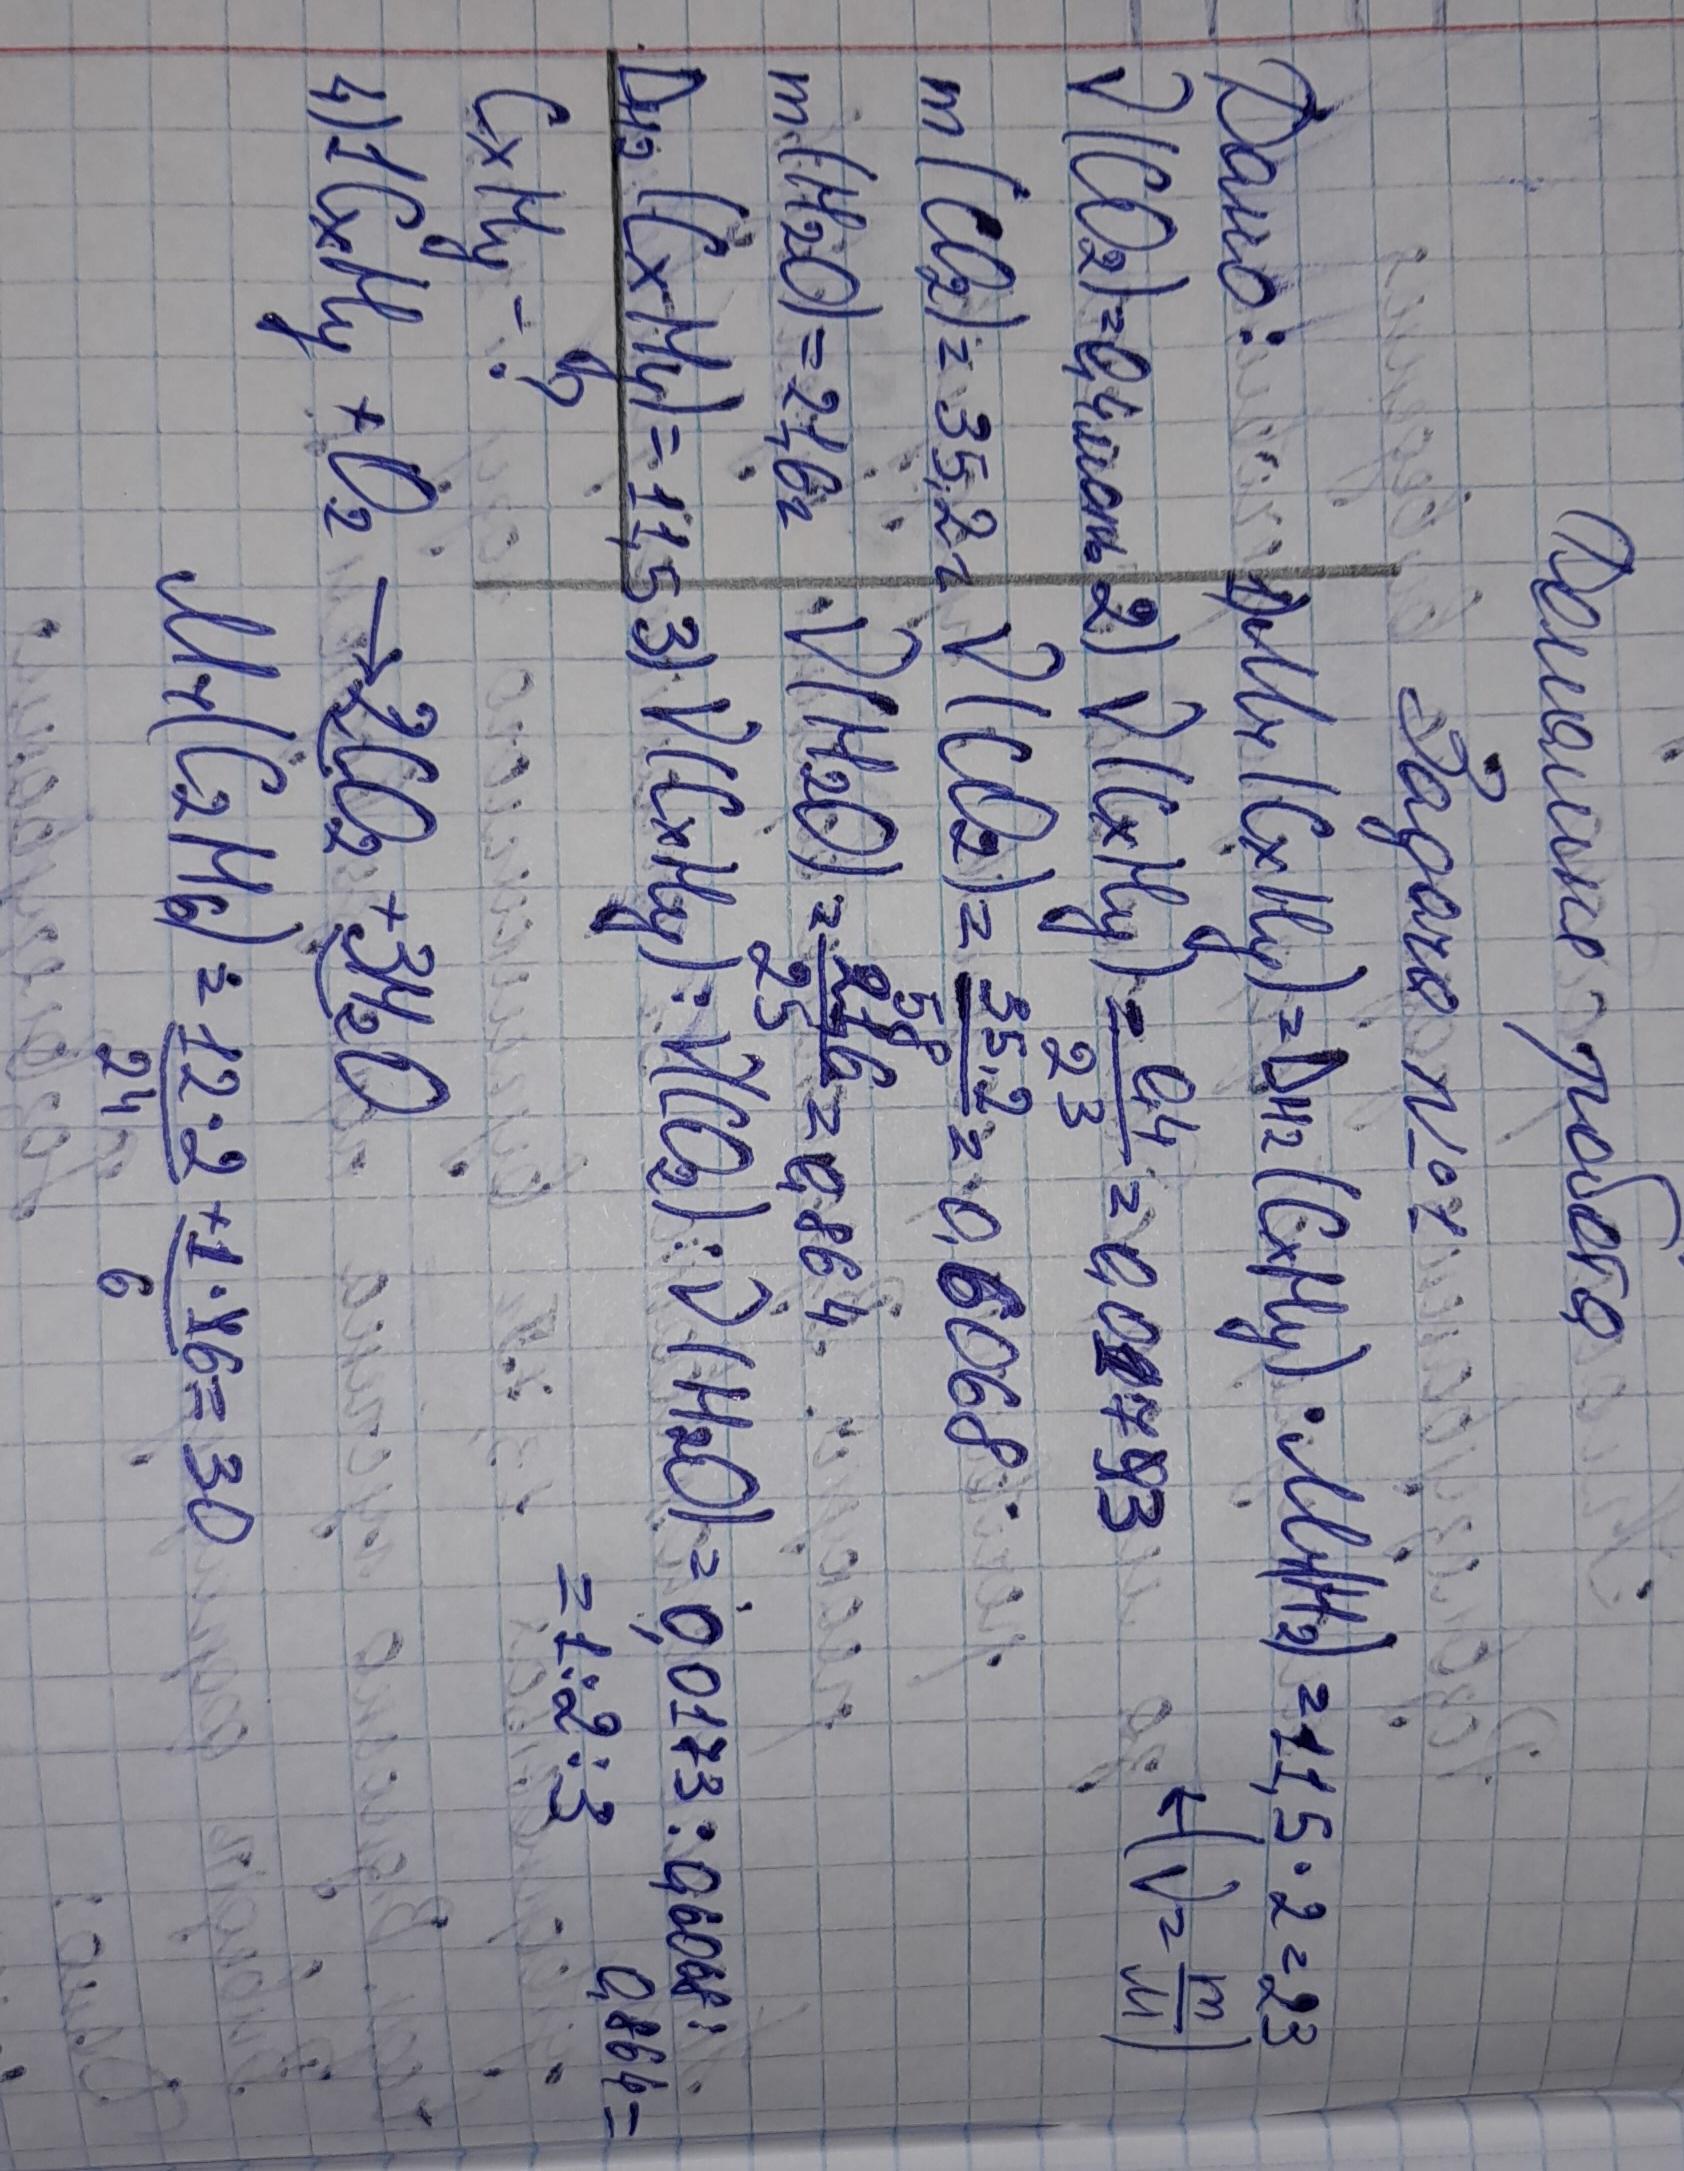 Домашне робота
Задача №1
Дано:
ν(CO2)=0,4моль
m(CO2)=35,2г
m(H2O)=21,6г
DH2(CxHy)=11,5
CxHy-?
1) Mr(CxHy)=DH2(CxHy)·Mr(H2)=11,5·2=23
2) ν(CxHy)=0,4/23=0,0173 ←(ν=m/M)
ν(CO2)=35,2/58=0,6068
ν(H2O)=21,6/25=0,864
3) ν(CxHy):ν(CO2):ν(H2O)=0,0173:0,6068:0,864=
=1:2:3
4) 1CxHy+O2→2CO2+3H2O
Mr(C2H6)=12·2+1·6=30
24 6